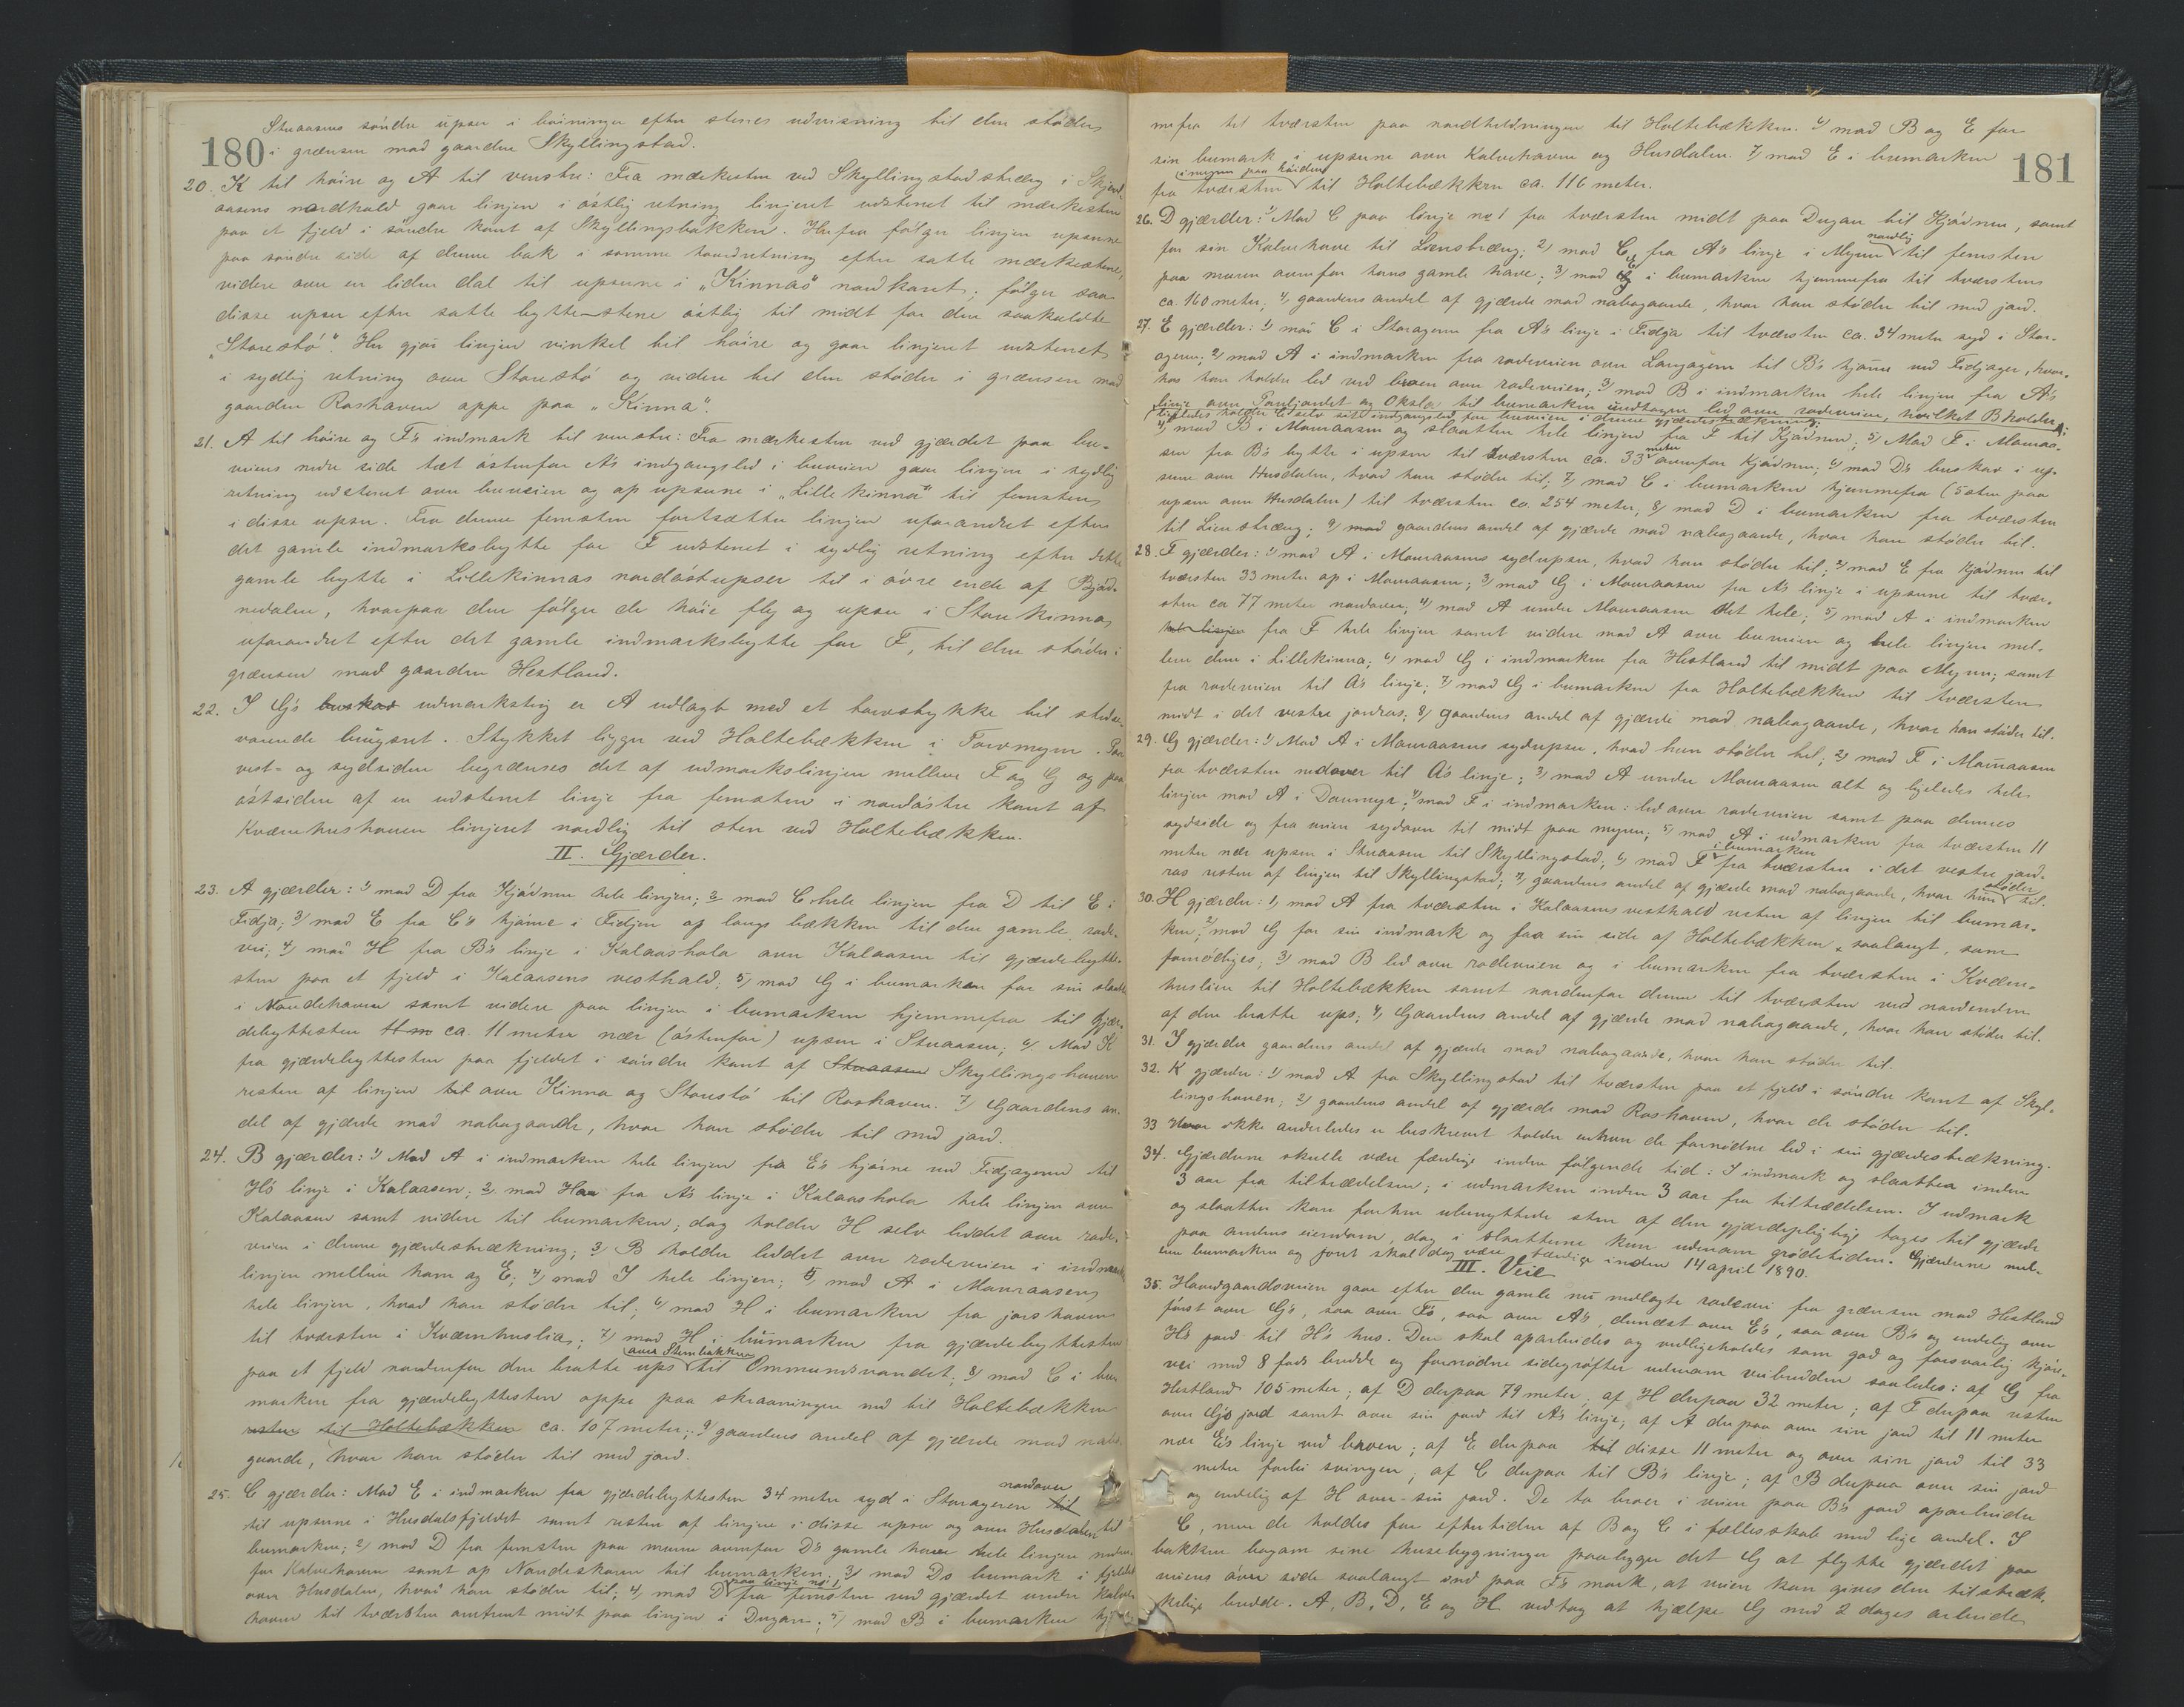 180
Stuaasens söndre upser i böininger efter stenes udvisning til den støder
i grænsen mod gaarden Skyllingstad.
20. K til höire og A til venstre: Fra mærkesten ved Skyllingstadstræng i
aasens nordhald gaar linjen i östlig retning linjeret udstenet til mærkesten
paa et fjeld i söndre kant af Skyllingsbakken. Herfra fölger linjen upsene
paa söndre side af denne bak i samme hovedretning efter satte mærkestene,
videre over en liden dal til upsene i „Kinnas" nordkant; fölger saa
disse upser efter satte byttestene östlig til midt for den saakaldte
„Storestö". Her gjör linjen vinkel til höire og gaar linjeret udstenet
i sydlig retning over Storestö og videre til den støder i grænsen mod
gaarden Roshaven oppe paa „Kinna".
21. A til höire og F's indmark til venstre: Fra mærkesten ved gjærdet paa bu-
veiens nedre side tæt östenfor A's indgangsled i buveien gaar linjen i sydlig
retning udstenet over buveien og op upsene i „Lillekinna" til femsten
i disse upser. Fra denne femsten fortsætter linjen uforandret efter
det gamle indmarksbytte for F udstenet i sydlig retning efter dette
gamle bytte i Lillekinnas nordöstupser til i övre ende af Bjöd-
nedalen, hvorpaa den fölger de höie fly og upser i Storekinna
uforandret efter det gamle indmarksbytte for F, til den støder i
grænsen mod gaarden Hestland.
22. I G's buskas udmarksteig er A udlagt med et torvstykke til stedse-
varende brugsret. Stykket ligger ved Holtebækken i Torvmyren. Paa
vest- og sydsiden begrænses det af udmarkslinjen mellem F og G og paa
östsiden af en udstenet linje fra femsten i nordöstre kant af
Kværnhushaven linjeret nordlig til sten ved Holtebækken.
II. Gjærder.
23. A gjærder: 1) mod D fra Kjödnen hele linjen; 2) mod C hele linjen fra D til E i
Fidja; 3) mod E fra C's hjörne i Fidjen op langs bækken til den gamle rode-
vei; 4) mod H fra B's linje i Kalaashola over Kalaasen til gjærdebytte-
sten paa et fjeld i Kalaasens vesthald; 5) mod G i bumarken for sin slaatte
i Nordehaven samt videre paa linjen i bumarken hjemmefra til gjær-
debyttesten 11 m ca. 11 meter nær (östenfor) upsen i Stuaasen; 6) Mod K
fra gjærdebyttesten paa fjeldet i söndre kant af Stuaasen Skyllingshaven
resten af linjen til over Kinna og Storestö til Roshaven. 7) Gaardens an-
del af gjærde mod nabogaarde, hvor han støder til med jord.
24. B gjærder: 1) Mod A i indmarken hele linjen fra E's hjörne ved Fidjageren til
H's linje i Kalaasen; 2) mod H fra A's linje i Kalaashola hele linjen over
Kalaasen samt videre til bumarken; dog holder H selv leddet over rode-
veien i denne gjærdestrækning; 3) B holder leddet over rodeveien i indmarks
linjen mellem ham og E; 4) mod I hele linjen; 5) mod A i Mauraasen
hele linjen, hvad han støder til; 6) mod H i bumarken fra jorshaven
til tværsten i Kværnhuslia; 7) mod H i bumarken fra gjærdebyttesten
paa et fjeld nordenfor den bratte ups over Stembakken til Ommundsvandet; 8) mod C i bu-
marken fra gjærdebyttesten oppe paa skraaningen ned til Holtebækken
resten til Holtebækken ca. 107 meter; 9) gaardens andel af gjærde mod nabo-
gaarde, hvor han støder til med jord.
25. C gjærder: Mod E i indmarken fra gjærdebyttesten 34 meter syd i Storageren til nordover
til upsene i Husdalsfjeldet samt resten af linjen i disse upser og over Husdalen til
bumarken; 2) mod D fra femsten paa muren ovenfor D's gamle have hele linjen neden-
for Kalvehaven samt op Nordeskaven til bumarken; 3) mod D's bumark i fjeldet
over Husdalen, hvad han støder til; 4) mod D paa linje no 1 fra femsten ved gjærdet under Kalve-
haven til tværsten omtrent midt paa linjen i Dugan; 5) mod B i bumarken hjem-
181
mefra til tværsten paa nordheldningen til Holtebækken. 6) mod B og E for
sin bumark i upsene over Kalvehaven og Husdalen. 7) mod E i bumarken
fra tværsten i myren paa höiden til Holtebækken ca. 116 meter.
26. D gjærder: 1) Mod C paa linje no 1 fra tværsten midt paa Dugan til Kjödnen, samt
for sin Kalvehave til Lensbræng; 2) mod C fra A's linje i Myren nordlig til femsten
paa muren ovenfor hans gamle have; 3) mod E i bumarken hjemmefra til tværsten
ca. 160 meter; 4) gaardens andel af gjærde mod nabogaarde, hvor han støder til med jord.
27. E gjærder: 1) mod C i Storageren fra A's linje i Fidja til tværsten ca. 34 meter syd i Stor-
ageren; 2) mod A i indmarken fra rodeveien over Langageren til B's hjörne ved Fidjager, hvor-
hos han holder led ved broen over rodeveien; 3) mod B i indmarken hele linjen fra A's
linje over Tonljordet og Oksla til bumarken undtagen led over rodeveien, hvilket B holder;
ligeledes holder E selv sit indgangsled for buveien i denne gjærdestrækning;
4) mod B i Mauraasen og slaatten hele linjen fra F til Kjödnen; 5) Mod F i Mauraa-
sen fra B's bytte i upsen til tværsten ca. 33 meter ovenfor Kjödnen; 6) mod D's buskav i up-
sene over Husdalen, hvad han støder til; 7) mod C i bumarken hjemmefra (5 sten paa
upsen over Husdalen) til tværsten ca. 254 meter; 8) mod D i bumarken fra tværsten
til Lienstræng; 9) mod gaardens andel af gjærde mod nabogaarde, hvor han støder til.
28. F gjærder: 1) mod A i Mauraasens sydupser, hvad han støder til; 2) mod E fra Kjödnen til
tværsten 33 meter op i Mauraasen; 3) mod G i Mauraasen fra A's linje i upsene til tvær-
sten ca 77 meter nordover; 4) mod A under Mauraasen det hele; 5) mod A i indmarken
hele linjen fra F hele linjen samt videre mod A over buveien og hele linjen mel-
lem dem i Lillekinna; 6) mod G i indmarken fra Hestland til midt paa Myren; samt
fra rodeveien til A's linje; 7) mod G i bumarken fra Holtebækken til tværsten
midt i det vestre jordras; 8) gaardens andel af gjærde mod nabogaarde, hvor han støder til.
29. G gjærder: 1) Mod A i Mauraasens sydupser, hvad hun støder til; 2) mod F i Mauraasen
fra tværsten nedover til A's linje; 3) mod A under Mauraasen alt og ligeledes hele
linjen mod A i Dommyr; 4) mod F i indmarken: led over rodeveien samt paa dennes
sydside og fra veien sydover til midt paa myren; 5) mod A i udmarken fra tværsten 11
meter nær upsen i Stuaasen til Skyllingstad; 6) mod F i bumarken fra tværsten i det vestre jord-
ras resten af linjen til Skyllingstad; 7) gaardens andel af gjærde mod nabogaarde, hvor hun støder til.
30. H gjærder: 1) mod A fra tværsten i Kalaasens vesthald resten af linjen til bumar-
ken; 2) mod G for sin indmark og paa sin side af Holtebækken saalangt, som
fornödiges; 3) mod B led over rodeveien og i bumarken fra tværsten i Kværn-
huslien til Holtebækken samt nordenfor denne til tværsten ved nordenden
af den bratte ups; 4) Gaardens andel af gjærde mod nabogaarde, hvor han støder til.
31. I gjærder gaardens andel af gjærde mod nabogaarde, hvor han støder til.
32. K gjærder: 1) mod A fra Skyllingstad til tværsten paa et fjeld i söndre kant af Skyl-
lingshaven; 2) gaardens andel af gjærde mod Roshaven, hvor de støder til.
33 Hvor ikke anderledes er beskrevet holder enhver de fornödne led i sin gjærdestrækning.
34. Gjærderne skulle være færdige inden fölgende tid: I indmark og slaatter inden
3 aar fra tiltrædelsen; i udmarken inden 3 aar fra tiltrædelsen. I udmark
og slaatter kan forhen ubenyttede sten af den gjærdepligtige tages til gjærde
paa andens eiendom, dog i slaatterne kun udenom grödetiden. Gjærderne mel-
lem bumarken og joret skal dog være færdige inden 14 april 1890.
III. Veie
35. Hovedgaardsveien gaar efter den gamle nu nedlagte rodevei fra grænsen mod Hestland
först over G's, saa over F's, saa over A's, dernæst over E's, saa over B's og endelig over
H's jord til H's hus. Den skal oparbeides og vedligeholdes som god og forsvarlig kjör-
vei med 8 fods bredde og fornödne sidegröfter udenom veibredden saaledes: af G fra
Hestland 105 meter; af D derpaa 79 meter; af H derpaa 32 meter; af F derpaa resten
over G's jord samt over sin jord til A's linje; af A derpaa over sin jord til 11 meter
nær E's linje ved broen; af E derpaa til disse 11 meter og over sin jord til 33
meter forbi svingen; af C derpaa til B's linje; af B derpaa over sin jord
og endelig af H over sin jord. De to broer i veien paa B's jord oparbeider
C, men de holdes for eftertiden af B og C i fællesskab med lige andel. I
bakken bagom sine husebygninger paaligger det G at flytte gjærdet paa
veiens övre side saalangt ind paa F's mark, at veien kan gives den tilstræk-
kelige bredde. A, B, D, E og H vedtog at hjælpe G med 2 dages arbeide